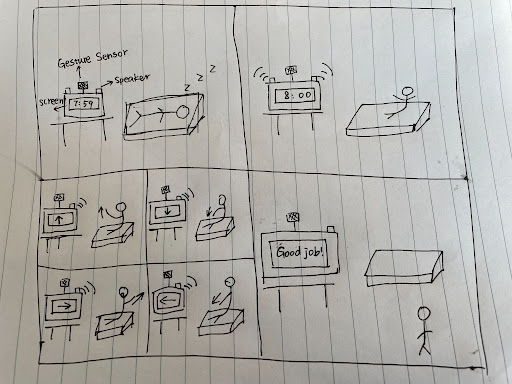 Gesture Sensor
speaker
screen
7:59
z z z
8:00
Good job!